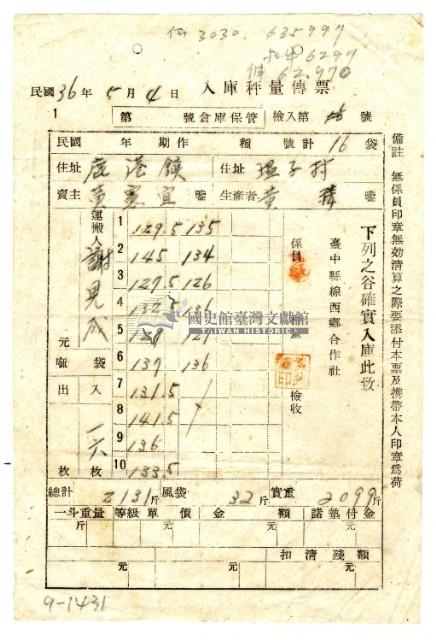 3030. 635997
6297
62.970
民國36年5月4日 入庫秤量傳票
1 第 號倉庫保管 檢入第 號
民國 年 期作 種 號計16袋
住址 鹿港鎮 住址 塭子村
賣主 黃 宜 鑒 生產者 黃 鑒
運搬人 謝見成
1 129.5 135
2 145 134
3 127.5 126
4 132.5 136
5 121
6 137 136
7 131.5
8 141.5
9 136
10 133.5
元 袋
出 入
一六
枚 枚
係員
檢收
臺中縣線西鄉合作社
下列之谷確實入庫此致
備註 無係員印章無効清算之際要添付本票及携帶本人印章為荷
國史館臺灣文獻館
TAIWAN HISTORICA
總計 2131斤 風袋 32斤 實重 2099斤
一斗重量 等級 單價 金額 諸墊付金
斤 元 元 元
扣清殘額
元 元 元
9-1431